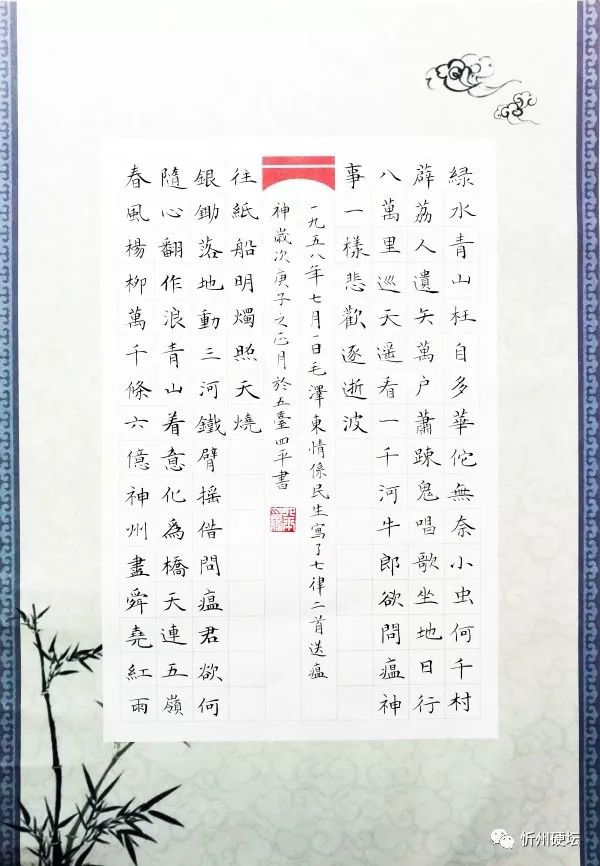 綠水青山枉自多華佗無奈小虫何千村
薜荔人遺矢萬户蕭踈鬼唱歌坐地日行
八萬里巡天遥看一千河牛郎欲問瘟神
事一樣悲歡逐逝波
春風楊柳萬千條六億神州盡舜堯紅雨
隨心翻作浪青山着意化為橋天連五嶺
銀鋤落地動三河鐵臂摇借問瘟君欲何
往紙船明燭照天燒
一九五八年七月一日毛澤東情係民生寫了七律二首送瘟
神歲次庚子之正月於五臺四平書
忻州硬坛